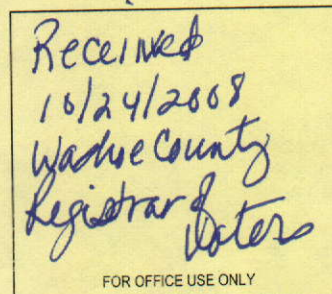 Received
10/24/2008
Washoe County
Registrar of
Voters
FOR OFFICE USE ONLY